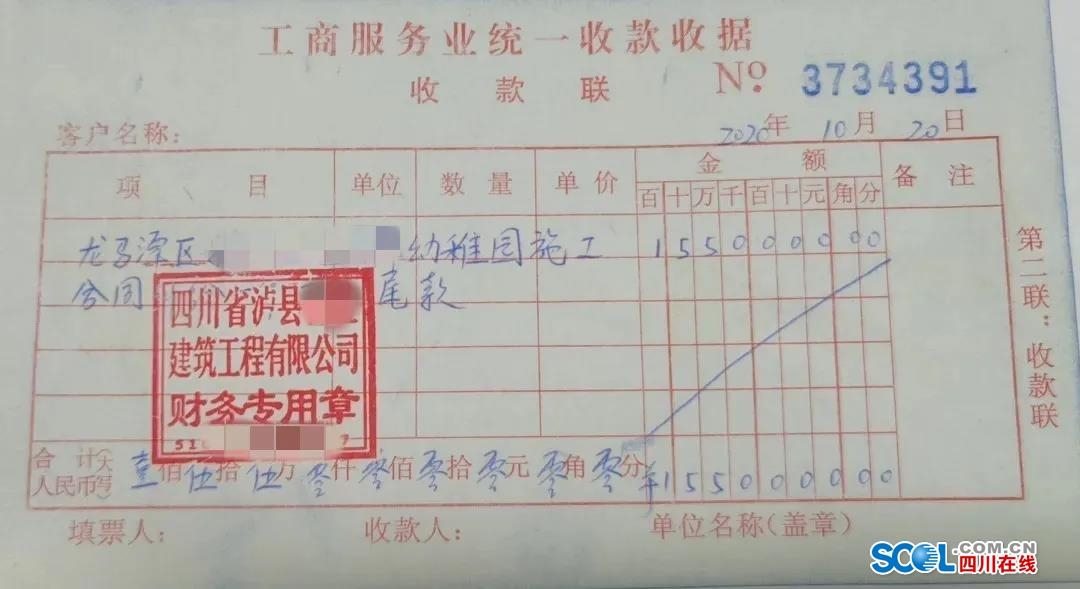 工商服务业统一收款收据
收款联 No. 3734391
客户名称： 2020年 10月 20日
项目 单位 数量 单价 金额 备注
百十万千百十元角分
龙马潭区 幼稚园施工 155000000
合同 尾款
四川省泸县
建筑工程有限公司
财务专用章
51 7
合计(大写)人民币 壹佰伍拾伍万零仟零佰零拾零元零角零分 ¥155000000
填票人： 收款人： 单位名称(盖章)
第二联：收款联
SCOL.COM.CN
四川在线